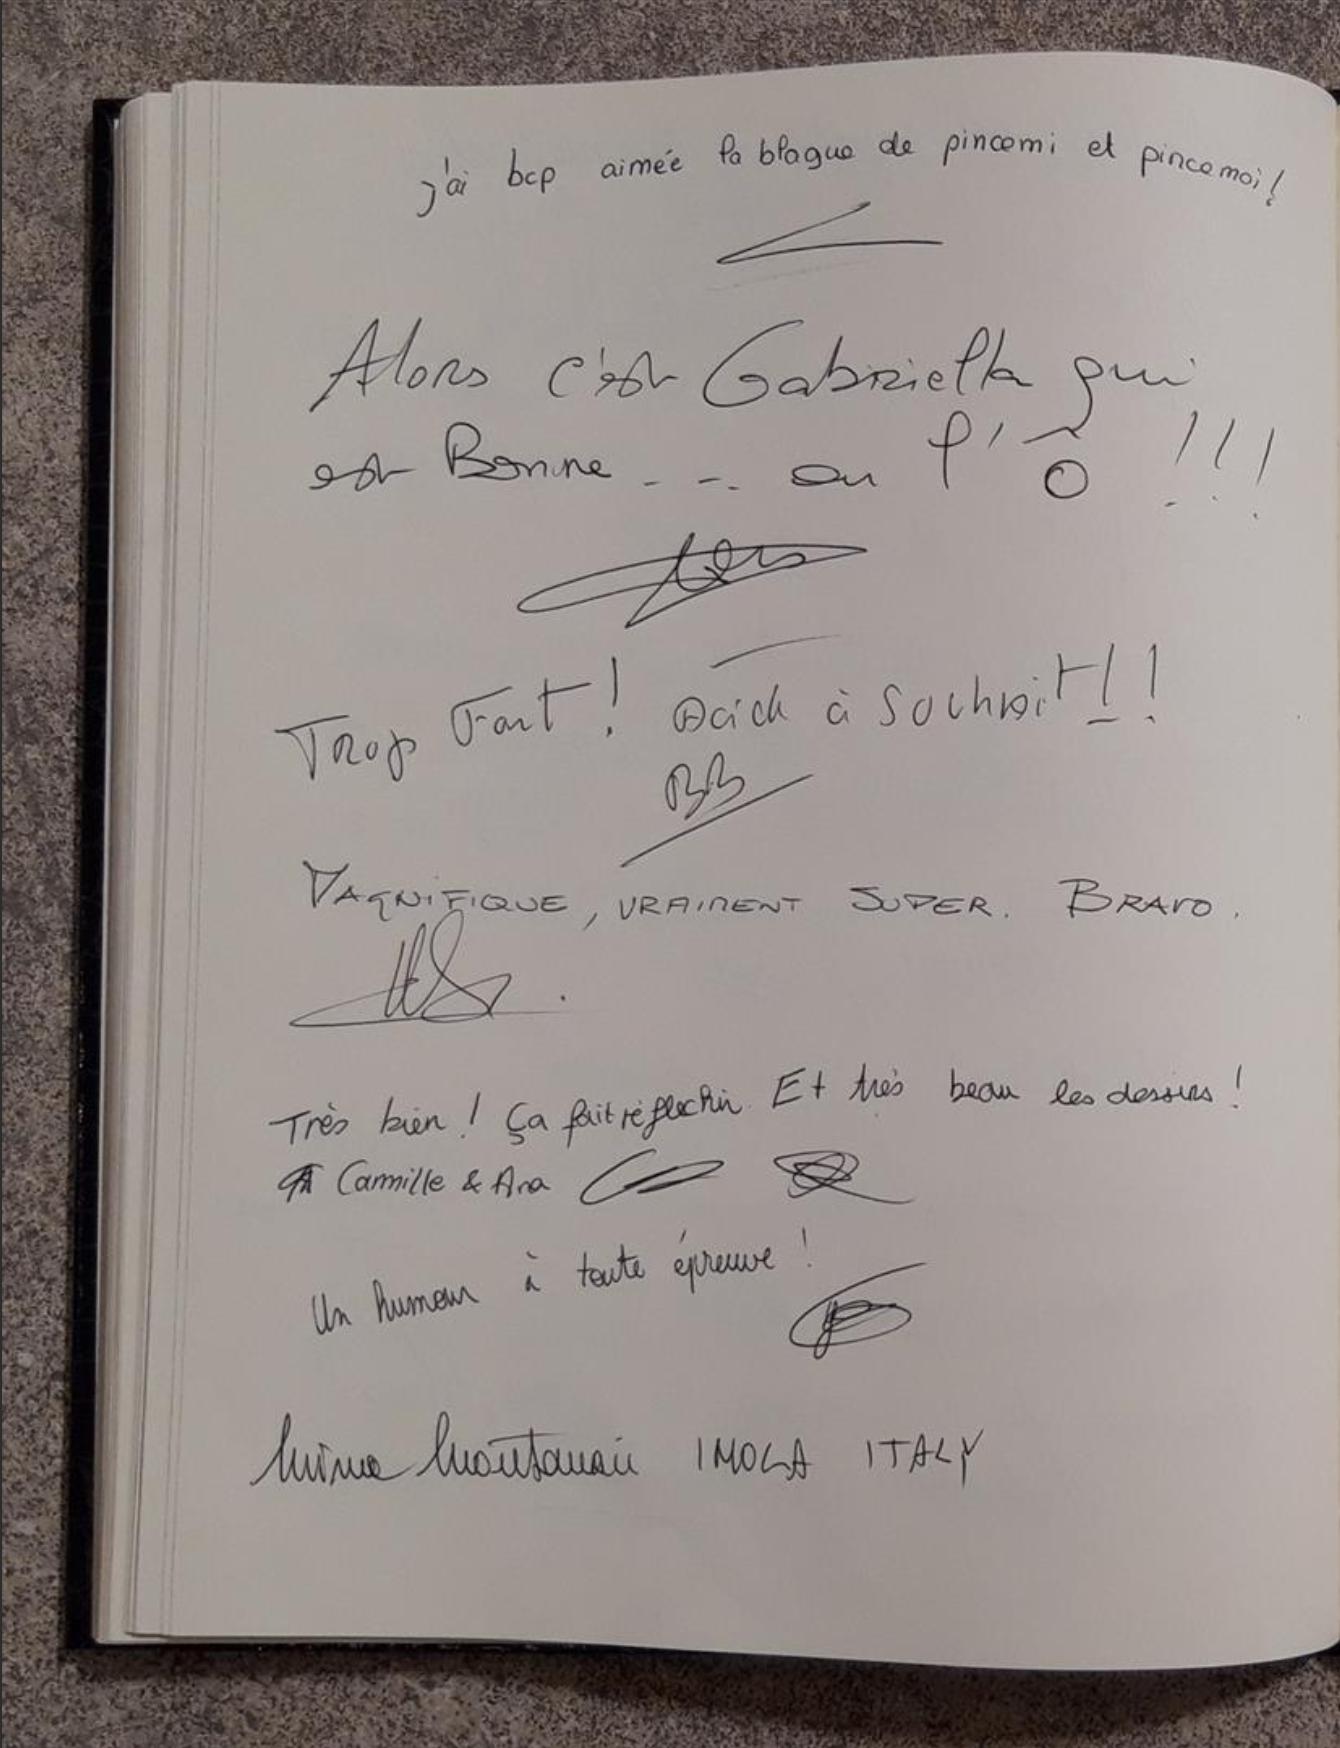 j'ai bcp aimée la blague de pincemi et pincemoi !
Alors c'est Gabriella qui
est Bonne - - -. ou l'Ô !!!
Trop Fort ! Acide à Souhait !!
BB
MAGNIFIQUE, VRAIMENT SUPER. BRAVO.
Très bien ! Ça fait réflechir. Et très beau les dessins !
Camille & Ana
Un humour à toute épreuve !
IMOLA ITALY